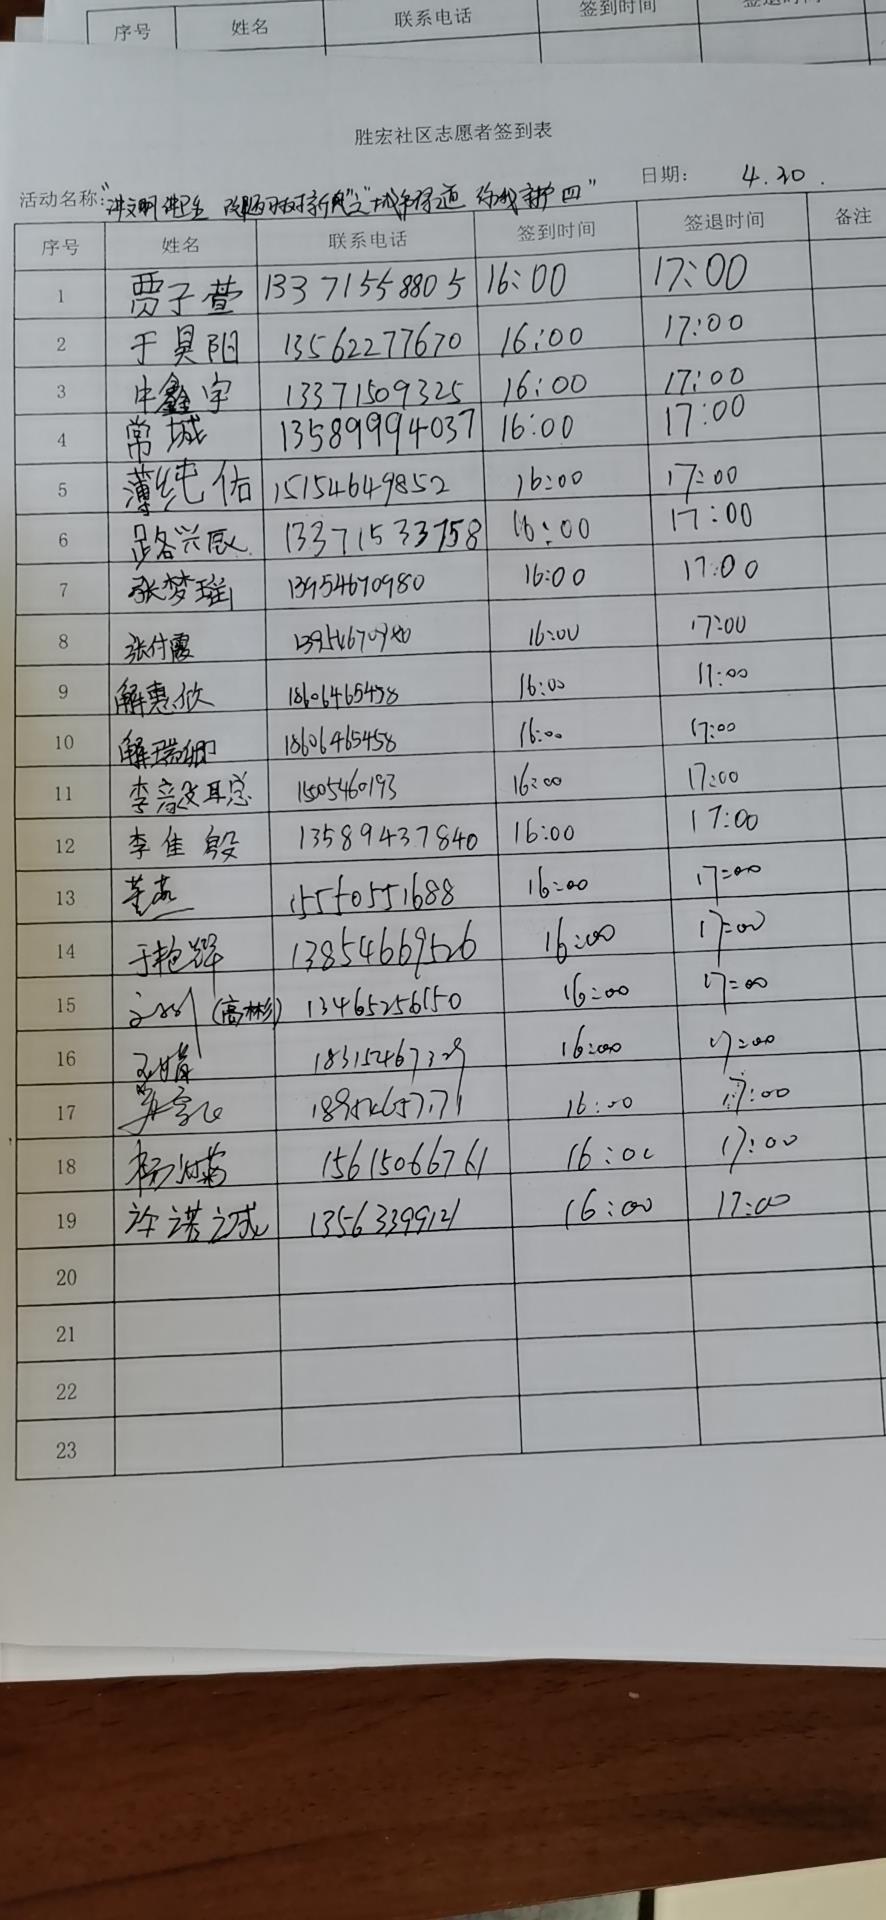 序号 姓名 联系电话 签到时间 签退时间
胜宏社区志愿者签到表
活动名称: 日期: 4.30
序号 姓名 联系电话 签到时间 签退时间 备注
1 贾子萱 13371558805 16:00 17:00
2 于昊阳 13562277670 16:00 17:00
3 鑫宇 13371509325 16:00 17:00
4 常城 13589994037 16:00 17:00
5 薄纯佑 15154649852 16:00 17:00
6 路兴辰 13371533758 16:00 17:00
7 张梦瑶 13954670980 16:00 17:00
8 张付霞 16:00 17:00
9 解惠欣 18606465458 16:00 17:00
10 解瑞卿 18606465458 16:00 17:00
11 李 16:00 17:00
12 李佳毅 13589437840 16:00 17:00
13 董燕 16:00 17:00
14 于艳辉 13854669526 16:00 17:00
15 (高彬) 13465256150 16:00 17:00
16 16:00 17:00
17 16:00 17:00
18 杨 15615066761 16:00 17:00
19 许诺之诚 16:00 17:00
20
21
22
23